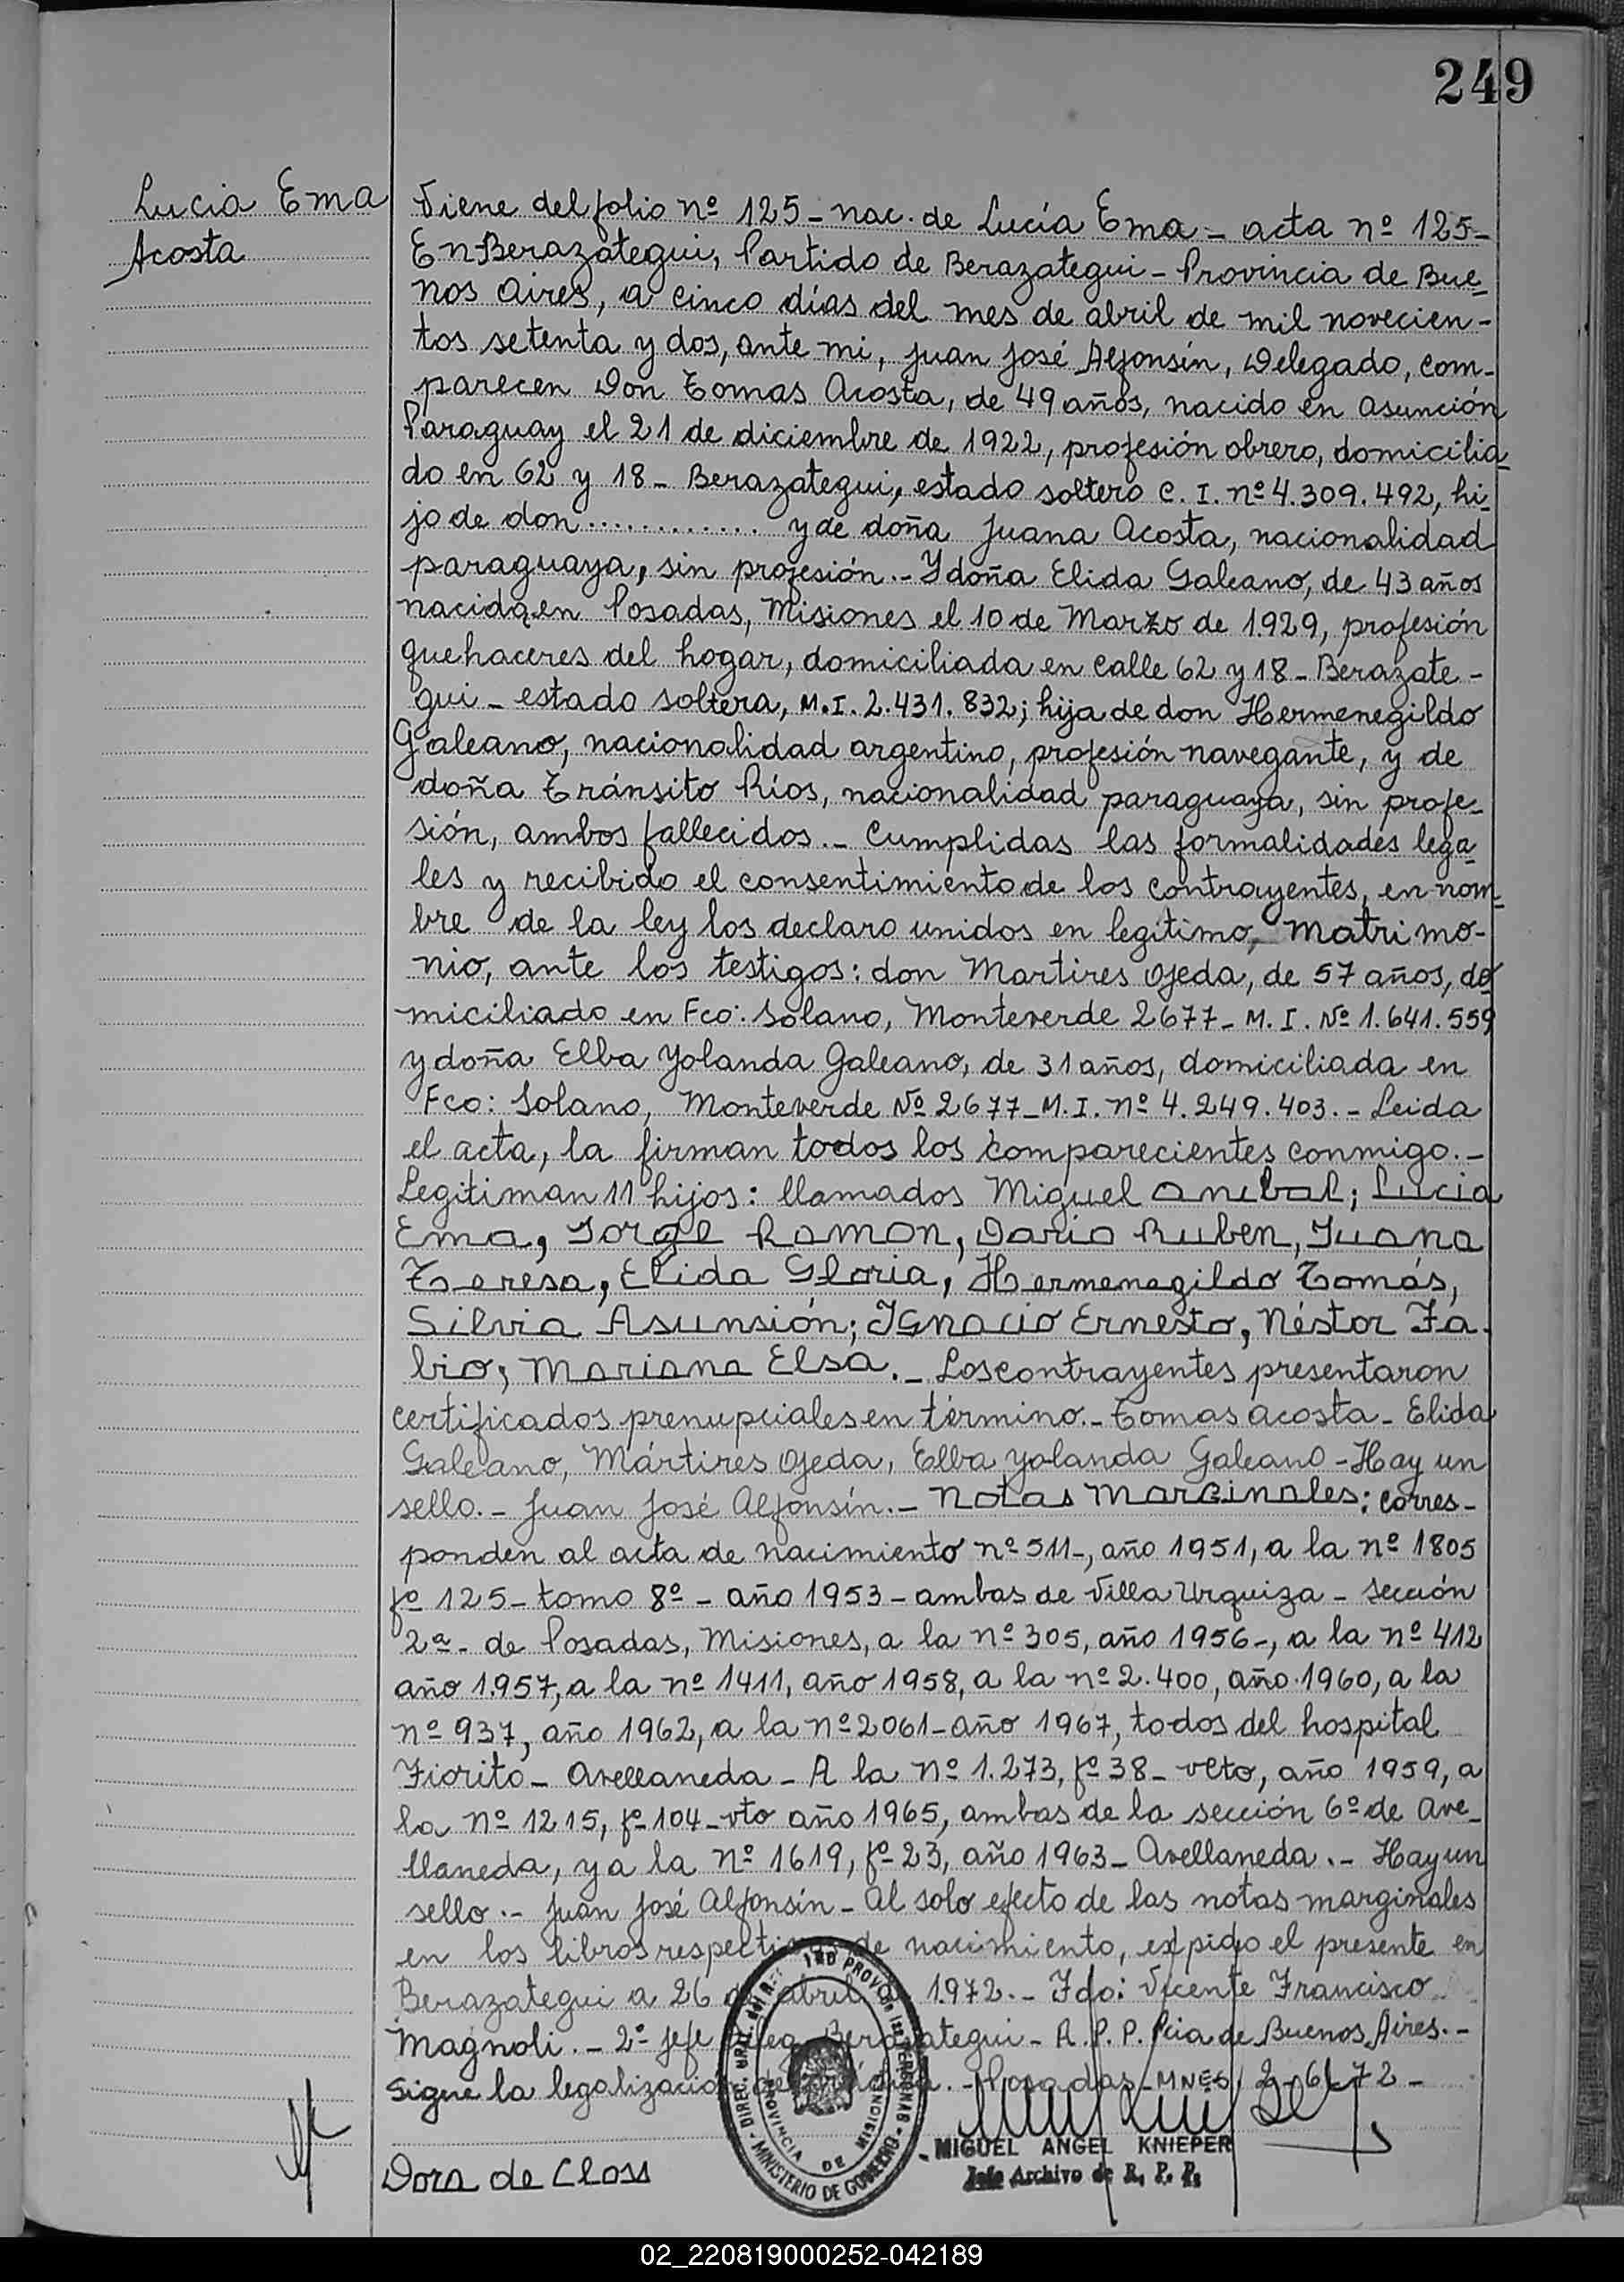 249
Lucia Ema
Acosta
Viene del folio nº 125 - nac. de Lucía Ema - acta nº 125-
En Berazategui, Partido de Berazategui - Provincia de Bue-
nos Aires, a cinco días del mes de abril de mil novecien-
tos setenta y dos, ante mi, Juan José Alfonsín, Delegado, com-
parecen Don Tomas Acosta, de 49 años, nacido en Asunción
Paraguay el 21 de diciembre de 1922, profesión obrero, domicilia-
do en 62 y 18 - Berazategui, estado soltero C. I. nº 4.309.492, hi-
jo de don ............ y de doña Juana Acosta, nacionalidad
paraguaya, sin profesión.- Y doña Elida Galeano, de 43 años
nacida en Posadas, Misiones el 10 de Marzo de 1929, profesión
quehaceres del hogar, domiciliada en calle 62 y 18 - Berazate-
gui - estado soltera, M.I. 2.431.832; hija de don Hermenegildo
Galeano, nacionalidad argentino, profesión navegante, y de
doña Tránsito Ríos, nacionalidad paraguaya, sin profe-
sión, ambos fallecidos.- Cumplidas las formalidades lega-
les y recibido el consentimiento de los contrayentes, en nom-
bre de la ley los declaro unidos en legítimo, matrimo-
nio, ante los testigos: don Martires Ojeda, de 57 años, do-
miciliado en Fco: Solano, Monteverde 2677 - M. I. Nº 1.641.559
y doña Elba Yolanda Galeano, de 31 años, domiciliada en
Fco: Solano, Monteverde Nº 2677 - M.I. nº 4.249.403.- Leida
el acta, la firman todos los comparecientes conmigo.-
Legitiman 11 hijos: llamados Miguel Anibal; Lucia
Ema, Jorge Ramon, Dario Ruben, Juana
Teresa, Elida Gloria, Hermenegildo Tomás,
Silvia Asunsión; Ignacio Ernesto, Néstor Fa-
bio, Mariana Elsa.- Los contrayentes presentaron
certificados prenupciales en término.- Tomas Acosta - Elida
Galeano, Mártires Ojeda, Elba Yolanda Galeano - Hay un
sello.- Juan José Alfonsín.- Notas Marginales: Corres-
ponden al acta de nacimiento nº 511-, año 1951, a la nº 1805
fº 125 - tomo 8º - año 1953 - ambas de Villa Urquiza - Sección
2ª - de Posadas, Misiones, a la nº 305, año 1956-, a la nº 412
año 1.957, a la nº 1411, año 1958, a la nº 2.400, año 1960, a la
nº 937, año 1962, a la nº 2061 - año 1967, todos del hospital
Fiorito - Avellaneda - A la Nº 1.273, fº 38 - vlto, año 1959, a
la nº 1215, fº 104 - vto año 1965, ambas de la sección 6º de Ave-
llaneda, y a la nº 1619, fº 23, año 1963 - Avellaneda.- Hay un
sello.- Juan José Alfonsín - Al solo efecto de las notas marginales
en los libros respectivos de nacimiento, expido el presente en
Berazategui a 26 de abril de 1.972.- Fdo: Vicente Francisco
Magnoli.- 2º Jefe Deleg. Berazategui - R. P. P. Pcia de Buenos Aires.-
Sigue la legalización Posadas - MNES, 2-6-72-
DIREC. GRAL. del R. PROV. de las PERSONAS
PROVINCIA DE MISIONES
MINISTERIO DE GOBIERNO
MIGUEL ANGEL KNIEPER
Jefe Archivo de R. P. P.
Dora de Closs
02_220819000252-042189